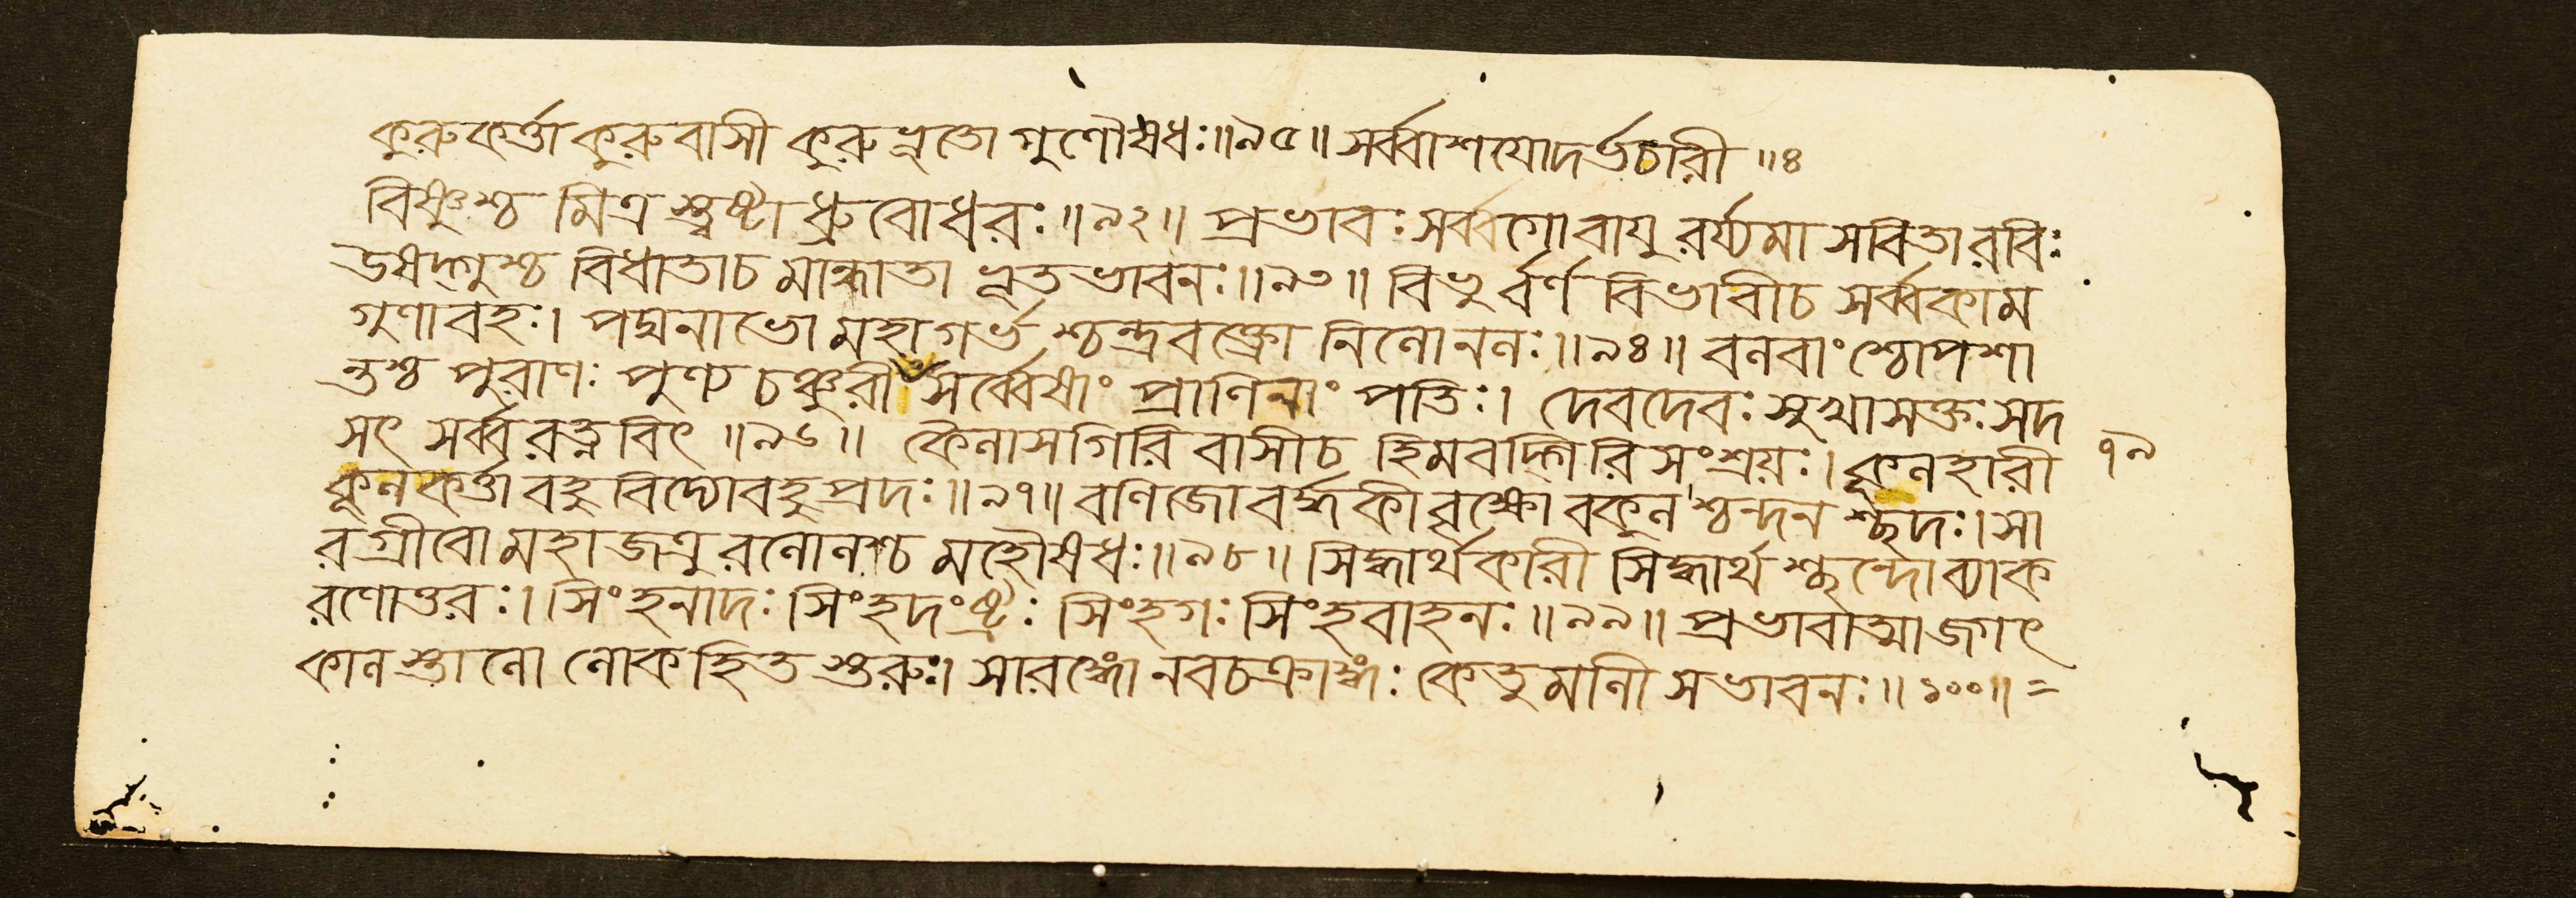 কুরুকর্ত্তা কুরুবাসী কুরুভূতো গুণৌষধঃ॥৯৫॥ সর্ব্বাশযোদর্ভচারী ॥৪
বিষ্ণুশ্চ মিত্রস্ত্বষ্টা ধ্রুবোধরঃ॥৯২॥ প্রভাবঃ সর্ব্বগোবাযু রর্য্যমা সবিতারবিঃ
উষদ্গুশ্চ বিধাতাচ মান্ধাতা ভূতভাবনঃ॥৯৩॥ বিভুর্বর্ণ বিভাবীচ সর্ব্বকাম
গুণাবহঃ। পদ্মনাভো মহাগর্ভ শ্চন্দ্রবক্ত্রো নিনোননঃ॥৯৪॥ বনবাংশ্চোপশা
ন্তশ্চ পুরাণঃ পুণ্য চঞ্চুরী সর্ব্বেষাং প্রাণিনাং পতিঃ। দেবদেবঃ সুখাসক্তঃ সদ
সৎ সর্ব্বরত্নবিৎ ॥৯৬॥ কৈনাসগিরিবাসীচ হিমবদ্গিরিসংশ্রয়ঃ। কূনহারী ৭৯
কূনকর্ত্তা বহুবিদ্যোবহুপ্রদঃ॥৯৭॥ বণিজোবর্দ্ধকীবৃক্ষো বকুন শ্চন্দন শ্ছদঃ। সা
রগ্রীবো মহাজত্রু রনোনশ্চ মহৌষধঃ॥৯৮॥ সিদ্ধার্থকারী সিদ্ধার্থ শ্ছন্দোব্যাক
রণোত্তরঃ। সিংহনাদঃ সিংহদংষ্ট্রঃ সিংহগঃ সিংহবাহনঃ॥৯৯॥ প্রভাবাত্মাজগৎ
কানস্থানো নোকহিত স্তরুঃ। সারঙ্গো নবচক্রাঙ্গঃ কেতুমানী সভাবনঃ॥১০০॥=